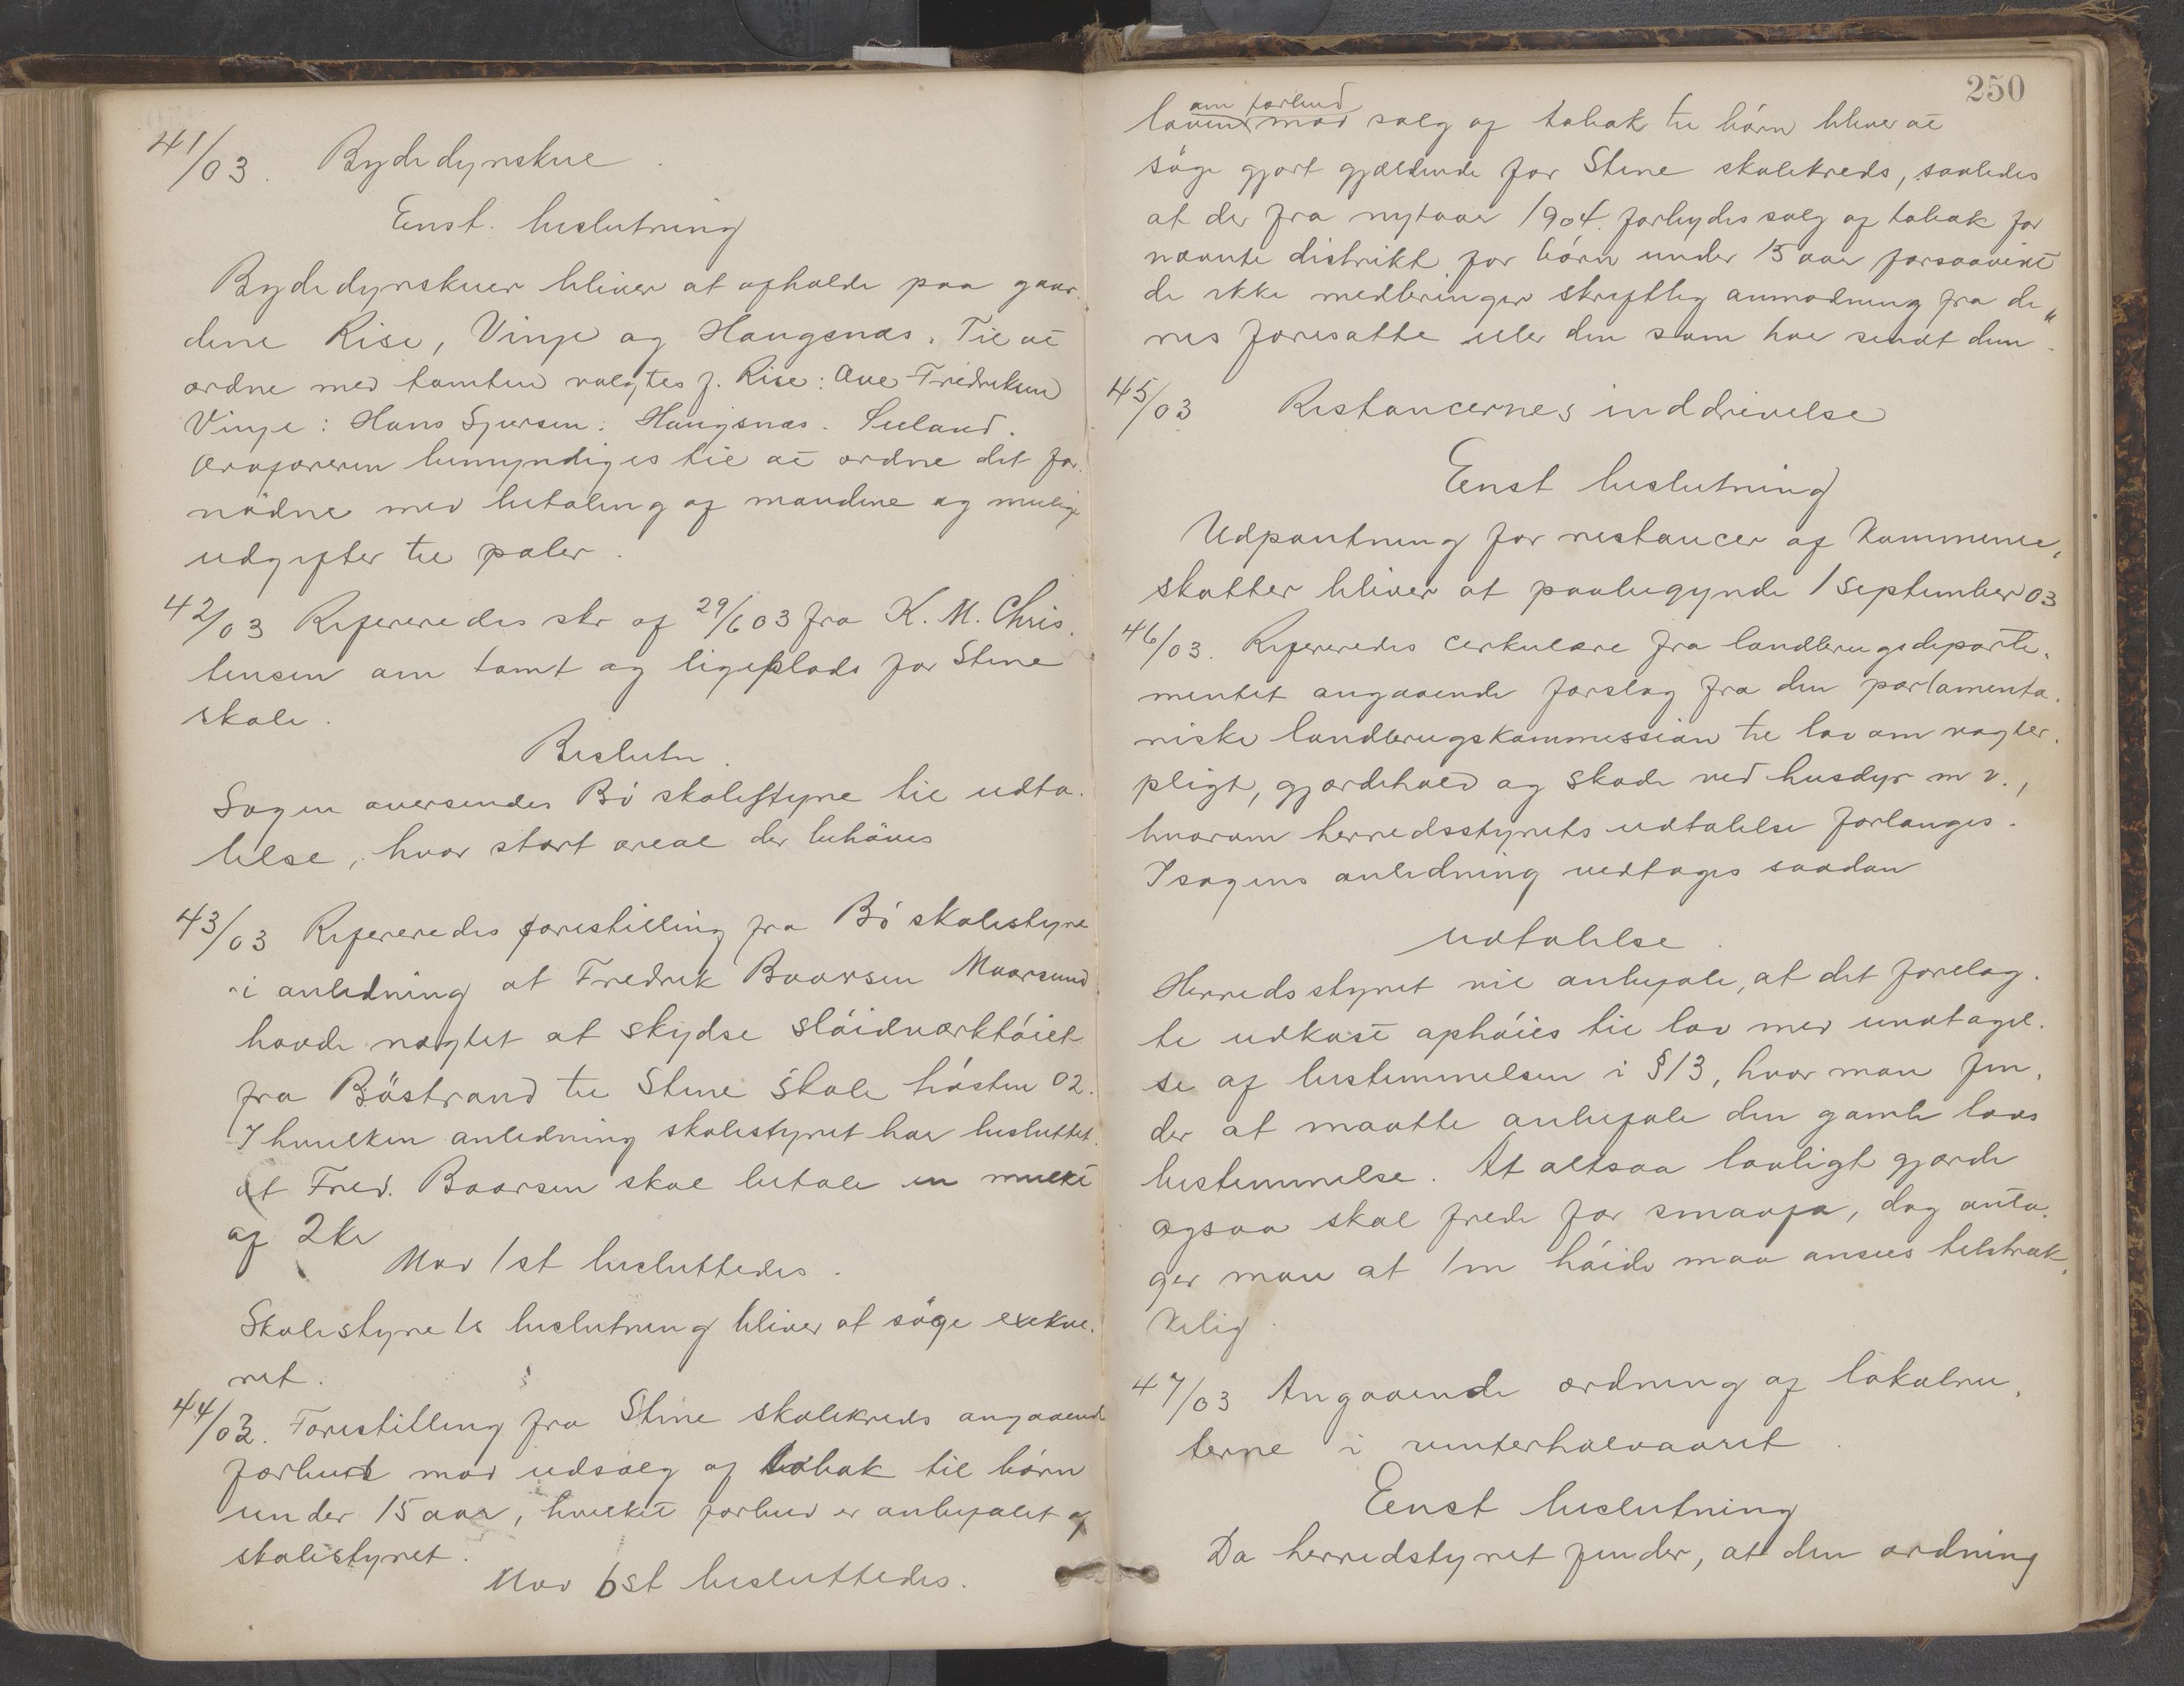 41/03. Bydedyrskue.
Enst. beslutning
Bydedyrskuer bliver at afholde paa gaar-
dene Rise, Vinje og Haugsnæs. Til at
ordne med tomten valgtes f. Rise: Ove Fredriksen
Vinje: Hans Sjursen. Haugsnæs.
Ordføreren bemyndiges til at ordne det for-
nødne med betaling af mændene og mulige
udgifter til pæler.
42/03 Refereredes skr af 29/6 03 fra K. M. Chris-
tensen om tomt og ligeplads for Stene
skole.
Beslutn.
Sagen oversendes Bø skolestyre til udta-
lelse, hvor stort areal der behøves
43/03 Refereredes forestilling fra Bø skolestyre
i anledning at Fredrik Baarsen Maarsund
havde nægtet at skydse sløidværktøiet
fra Bøstrand til Stene skole høsten 02.
I hvilken anledning skolestyret har besluttet
at Fred. Baarsen skal betale en mulkt
af 2 kr
Mod 1 st besluttedes.
Skolestyrets beslutning bliver at søge exekve-
ret.
44/03. Forestilling fra Stene skolekreds angaaende
forbud mod udsalg af tobak til børn
under 15 aar, hvilket forbud er anbefalet af
skolestyret.
Mod 6 st besluttedes.
250
om forbud
loven mod salg af tobak til børn bliver at
søge gjort gjældende for Stene skolekreds, saaledes
at der fra nytaar 1904. forbydes salg af tobak for
nævnte distrikt for børn under 15 aar forsaavidt
de ikke medbringer skriftlig anmodning fra de-
res foresatte eller den som har sendt dem.
45/03 Restancernes inddrivelse
Eenst beslutning
Udpantning for restancer af kommune-
skatter bliver at paabegynde 1 september 03
46/03. Refereredes cirkulære fra landbrugsdeparte-
mentet angaaende forslag fra den parlamenta-
riske landbrugskommission til lov om vogter-
pligt, gjærdehold og skade ved husdyr m v.,
hvorom herredsstyrets udtalelse forlanges.
I sagens anledning vedtages saadan
udtalelse.
Herredsstyret vil anbefale, at det forelag-
te udkast ophøies til lov med undtagel-
se af bestemmelsen i §13, hvor man fin-
der at maatte anbefale den gamle lovs
bestemmelse. At altsaa lovligt gjærde
ogsaa skal frede for smaafæ, dog anta-
ger man at 1 m høide maa ansees tilstræk-
kelig.
47/03 Angaaende ordning af lokalru-
terne i vinterhalvaaret.
Eenst beslutning
Da herredstyret finder, at den ordning